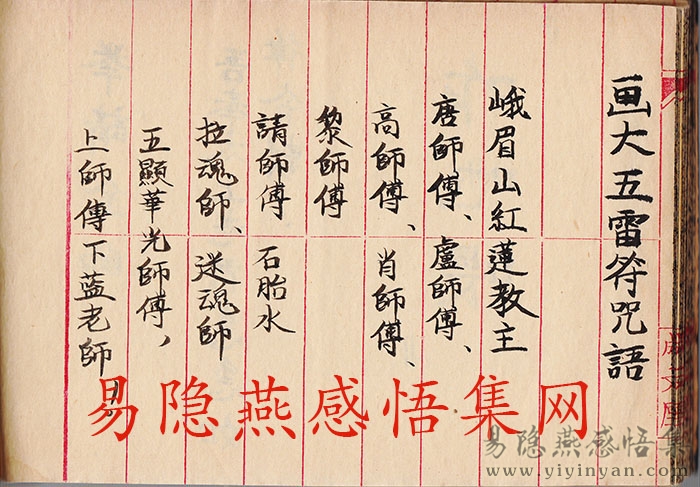 画大五雷符咒語
峨眉山紅蓮教主
唐師傅、盧師傅、
高師傅、肖師傅、
黎師傅
請師傅 石胎水
拉魂師、迷魂師
五顯華光師傅，
上師傳下藍老師
易隐燕感悟集网
易隐燕感悟集
www.yiyinyan.com